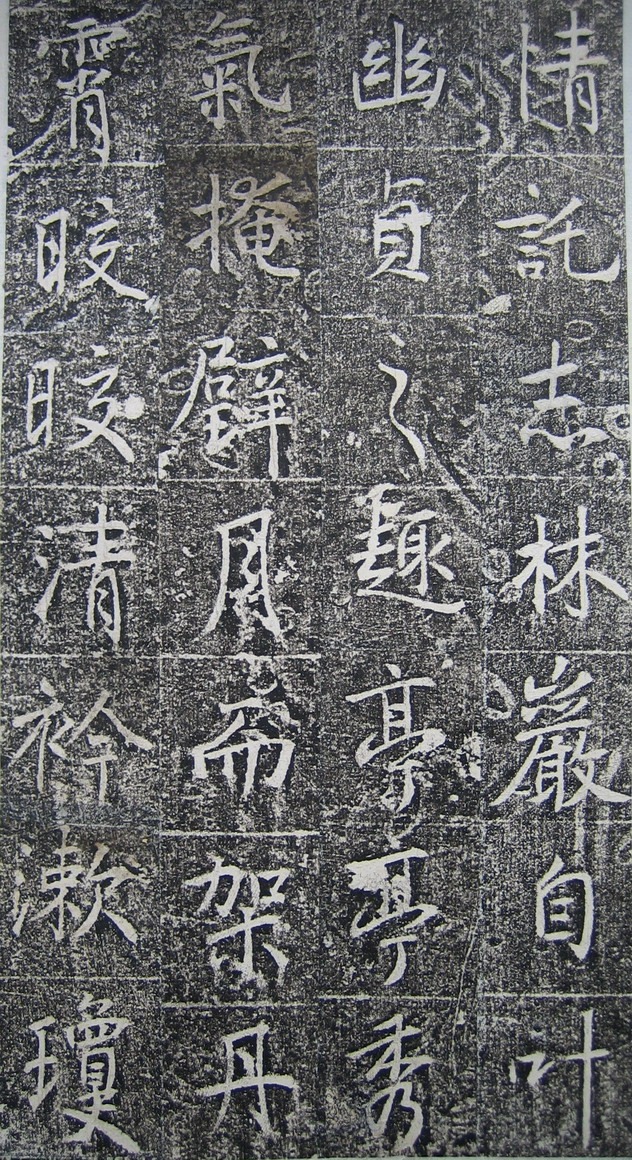 情託志林巖自叶
幽貞之趣亭亭秀
氣掩辟月而架丹
霄皎皎清衿漱瓊